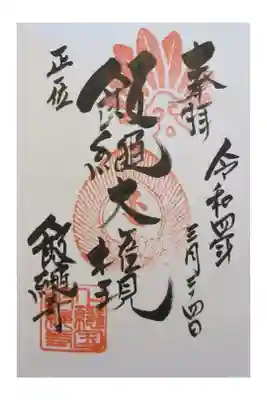 奉拝
令和四年
三月二十四日
飯縄大権現
正一位
飯縄寺